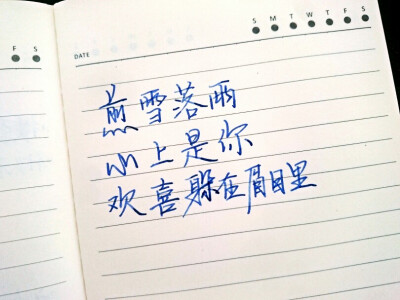 F S
S M T W T F S
DATE
雪落雨
上是你
欢喜躲在眉目里